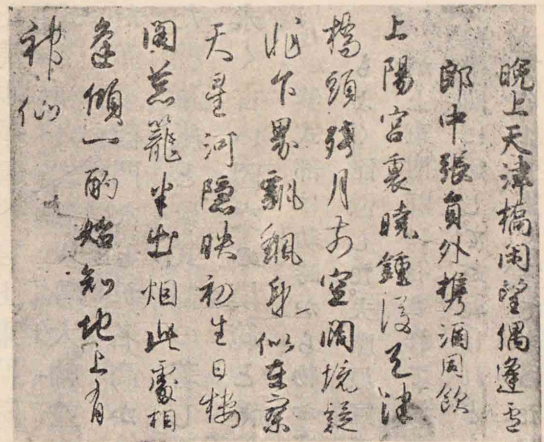 晩上天津橋閑望偶逢盧
郎中張員外携酒同飲
上陽宮裏曉鍾後天津
橋頭殘月前空闊境疑
非下界飄飄身似在寥
天星河隱映初生日樓
閣葱蘢半出烟此處相
逢傾一酌始知地上有
神仙